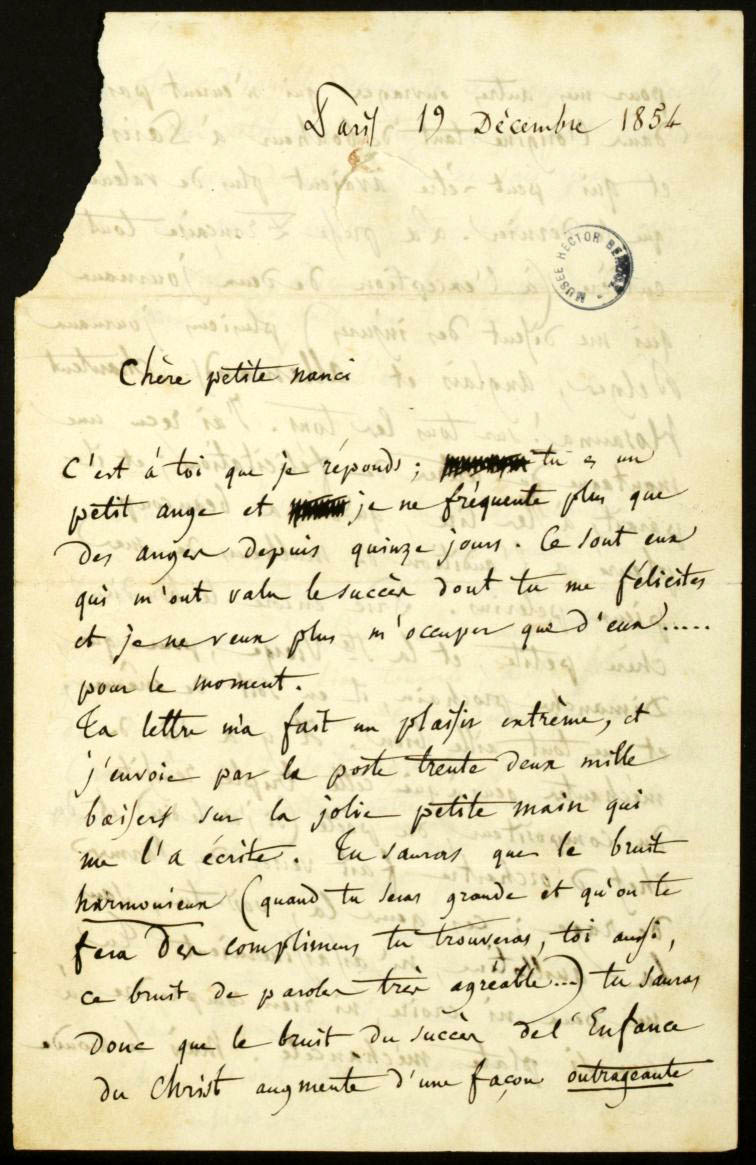 Paris 19 Décembre 1854
MUSEE HECTOR BERLIOZ
Chère petite nanci
C'est à toi que je réponds; tu es un
petit ange et je ne fréquente plus que
des anges depuis quinze jours. Ce sont eux
qui m'ont valu le succès dont tu me félicites
et je ne veux plus m'occuper que d'eux.....
pour le moment.
Ta lettre m'a fait un plaisir extrême, et
j'envoie par la poste trente deux mille
baisers sur la jolie petite main qui
me l'a écrite. Tu sauras que le bruit
harmonieux (quand tu seras grande et qu'on te
fera des complimens tu trouveras, toi aussi,
ce bruit de paroles très agréable...) tu sauras
donc que le bruit du succès de l'Enfance
du Christ augmente d'une façon outrageante